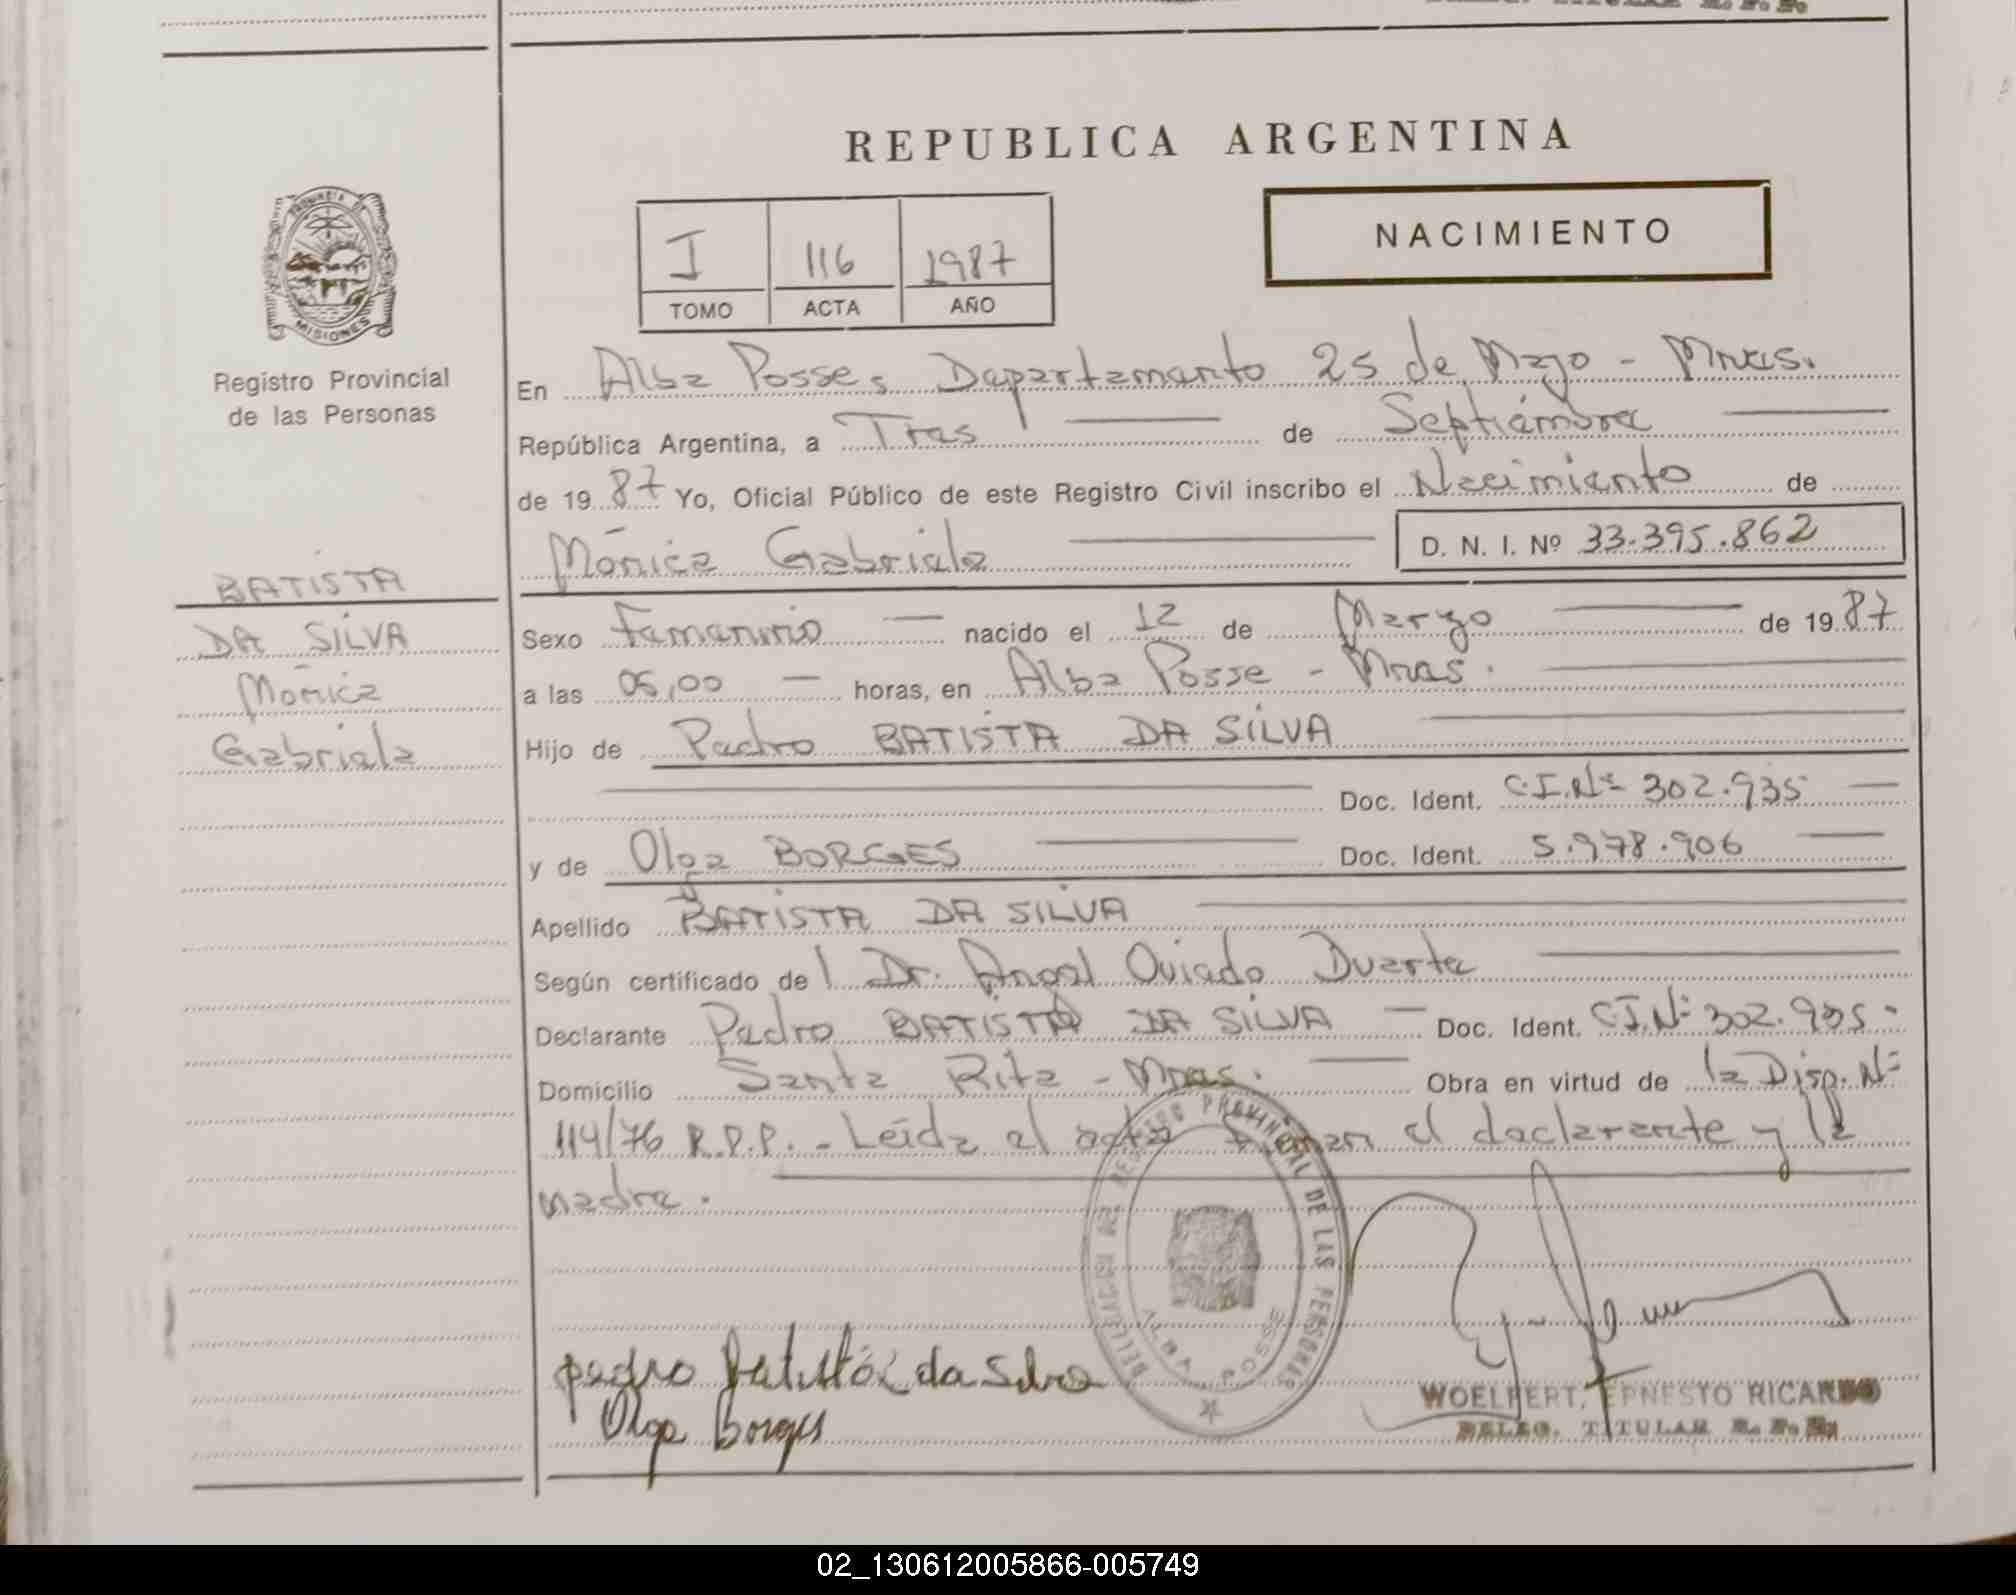 REPUBLICA ARGENTINA
PROVINCIA DE
MISIONES
Registro Provincial
de las Personas
I 116 1987
TOMO ACTA AÑO
NACIMIENTO
En Alba Posse, Departamento 25 de Mayo - Mnes.
República Argentina, a Tres de Septiémbre
de 19 87 Yo, Oficial Público de este Registro Civil inscribo el Nacimiento de
Mónica Gabriela D. N. I. Nº 33.395.862
BATISTA
DA SILVA
Mónica
Gabriela
Sexo Femenino nacido el 12 de Marzo de 19 87
a las 05,00 horas, en Alba Posse - Mnes.
Hijo de Pedro BATISTA DA SILVA
Doc. Ident. C.I.Nº 302.935
y de Olga BORGES Doc. Ident. 5.978.906
Apellido BATISTA DA SILVA
Según certificado del Dr. Angel Oviedo Duarte
Declarante Pedro BATISTA DA SILVA Doc. Ident. C.I.Nº 302.935.
Domicilio Santa Rita - Mnes. Obra en virtud de la Disp. Nº
114/76 R.P.P. - Leída el acta firman el declarante y la
madre.
DELEGACION DEL REGISTRO PROVINCIAL DE LAS PERSONAS
ALBA POSSE
pedro Batista da Silva
Olga Borges
WOELFERT, ERNESTO RICARDO
DELEG. TITULAR R. P. P.
02_130612005866-005749